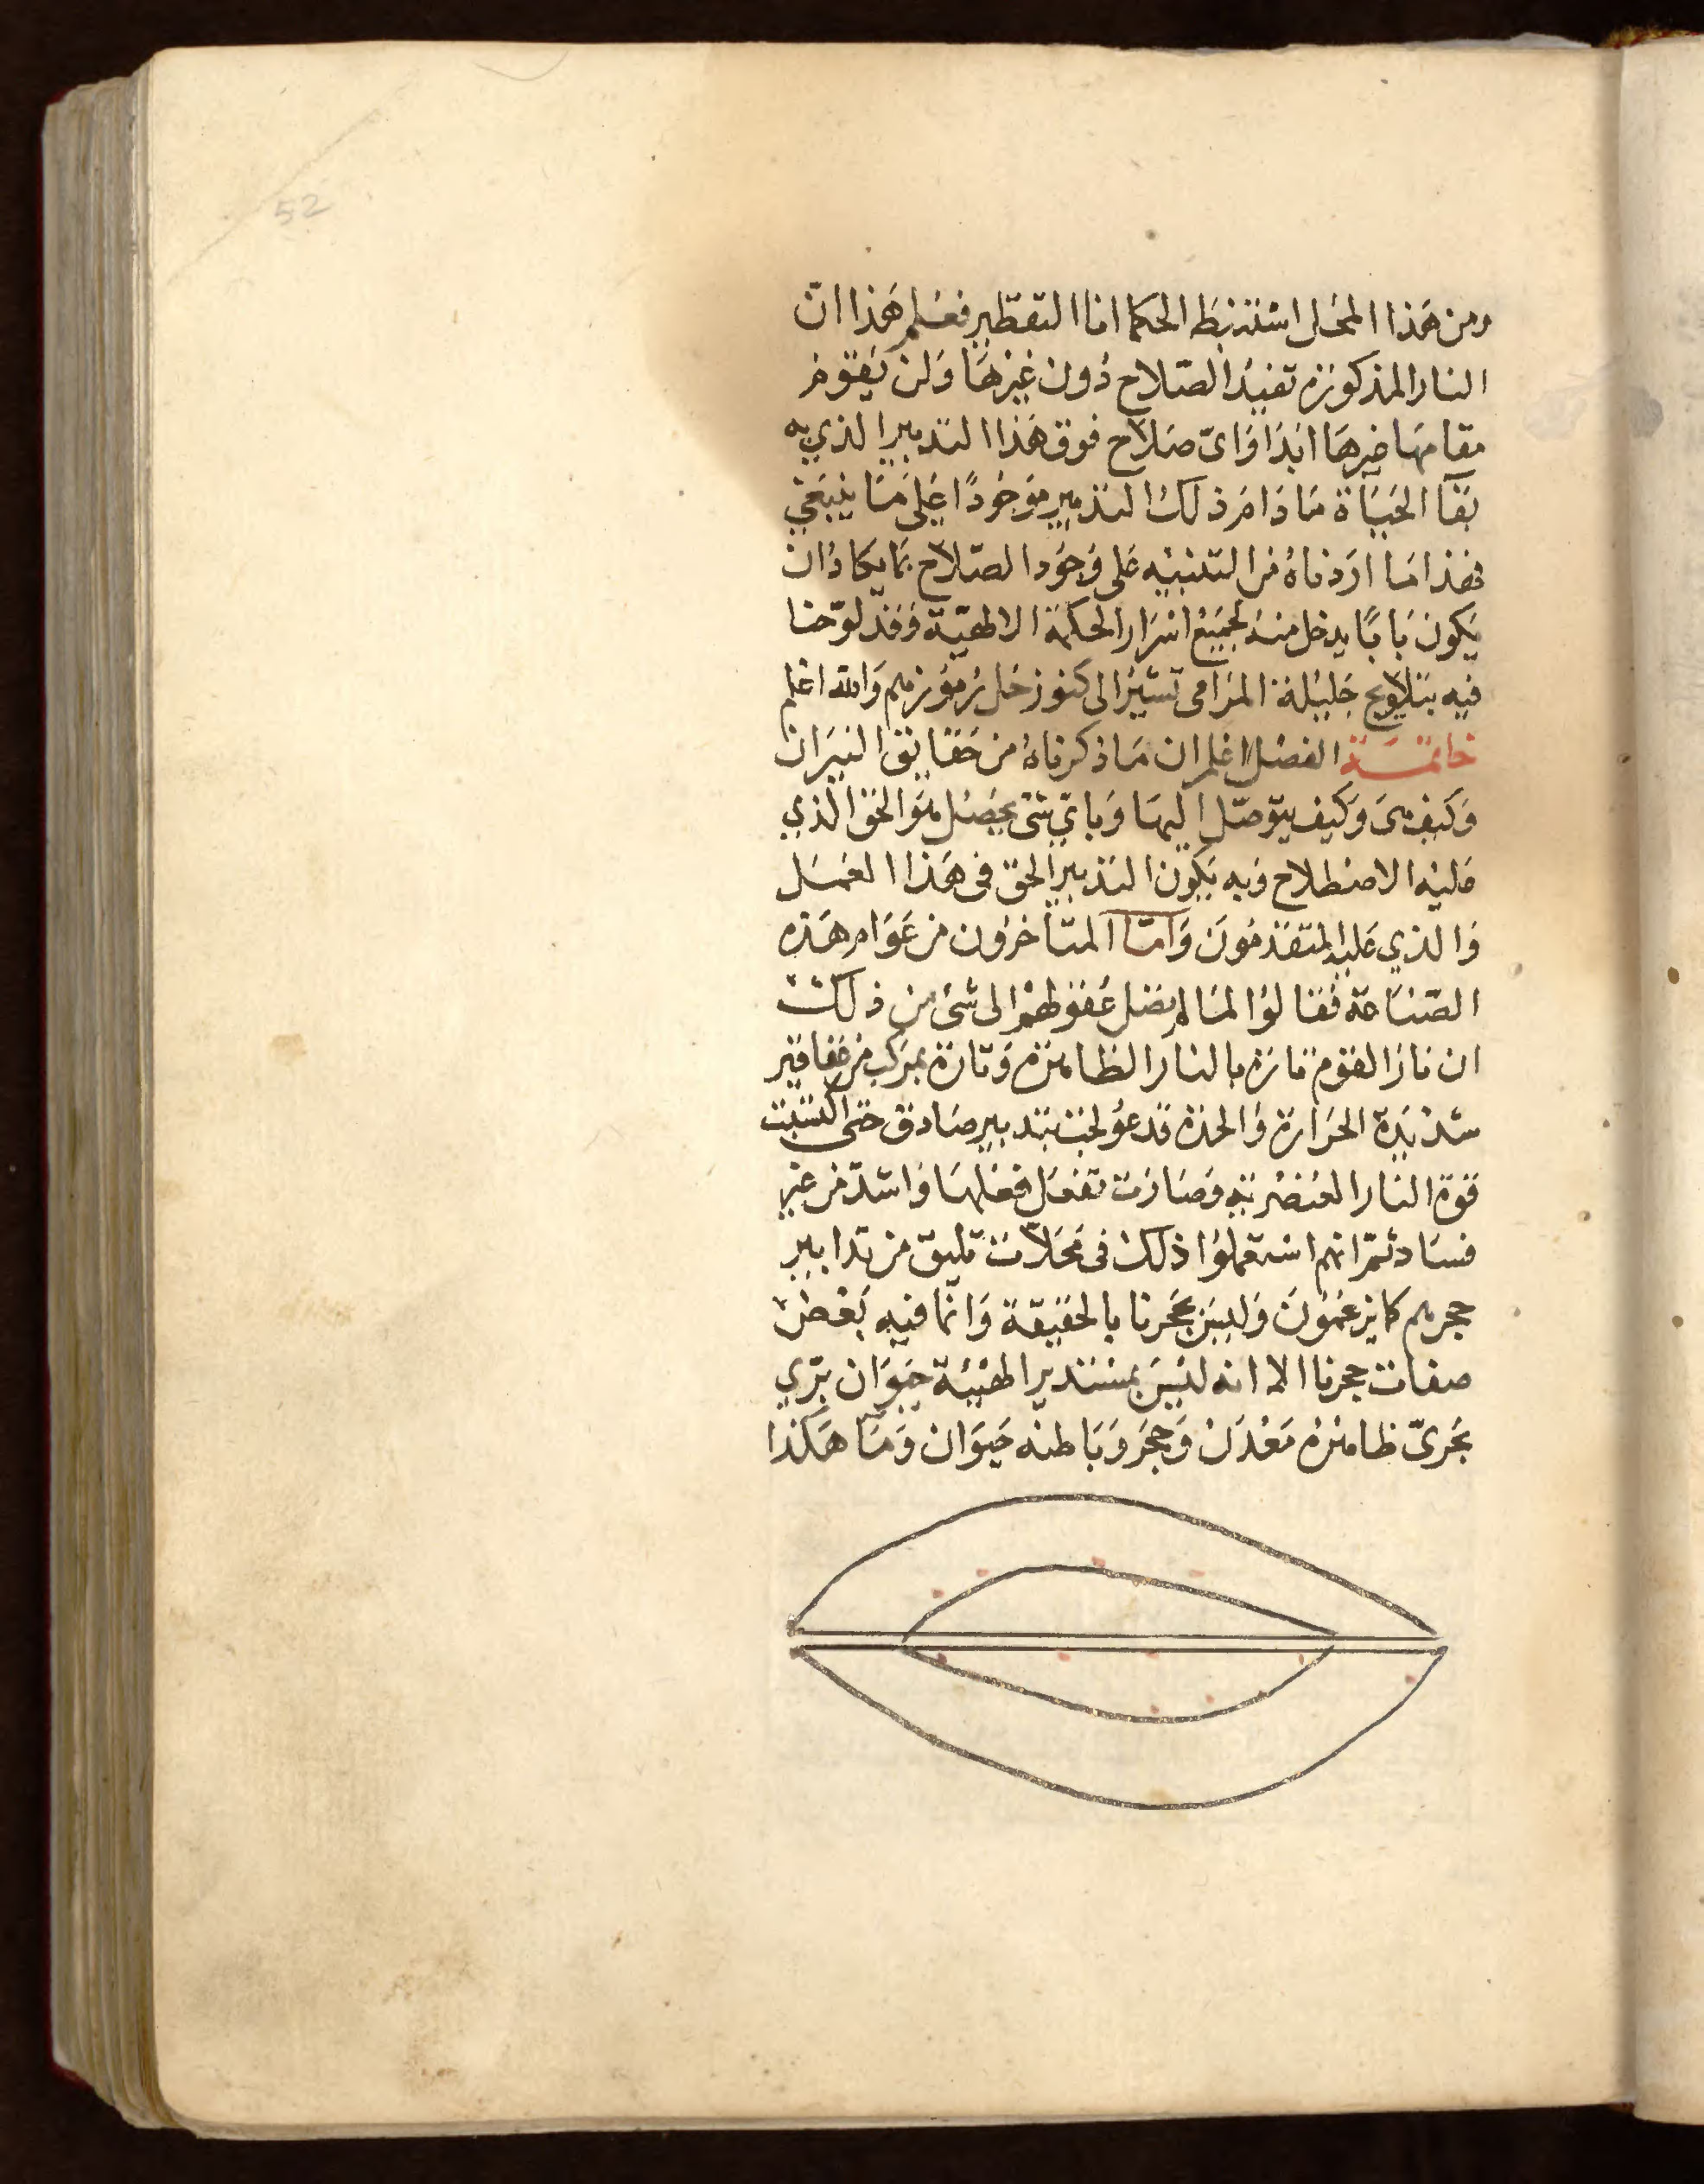 52
ومن هذا المحل استنبط الحكما انا التقطير فعلم هذا ان
النار المذكورة تفيد الصّلاح دون غيرها ولن يقوم
مقامها غيرها ابدا واىّ صلاح فوق هذا التدبير الذي به
بقآ الحياة ما دام ذلك التدبير موجودًا على ما ينبغي
فهذا ما اردناه من التنبيه على وجود الصّلاح بما يكاد ان
يكون بابًا يدخل منه لجميع اسرار الحكمة الالهيّة فقد لوّحنا
فيه بتلاويح جليلة المرامى تشير الى كنوز حل رموزهم والله اعلم
خاتمة الفصل اعلم ان ما ذكرناه من حقايق النيران
وكيف هى وكيف يتوصّل اليها وباىّ شى يحصل هو الحق الذي
عليه الاصطلاح وبه يكون التدبير الحق فى هذا العمل
والذي عليه المتقدمون وامّا المتأخرون من عوام هذه
الصّناعة فقالوا لما لم يصل عقولهم الى شئ من ذلك
ان نار القوم تارة بالنار الظاهرة وتارة بمركب من عقاقير
شديدة الحرارة والحدة قد عولجت بتدبير صادق حتى اكتسبت
قوة النار العنصرية وصارت تفعل فعلها واشدّ من غير
فساد ثمّ انهم استعملوا ذلك فى محلاّت تليق من تدابير
حجرهم كما يزعمون وليس بحجرنا بالحقيقة وانّما فيه بعض
صفات حجرنا الا انه ليس بمستدير الهيئة حيوان برّي
بحرىّ ظاهره معدن وحجر وباطنه حيوان وما هكذا